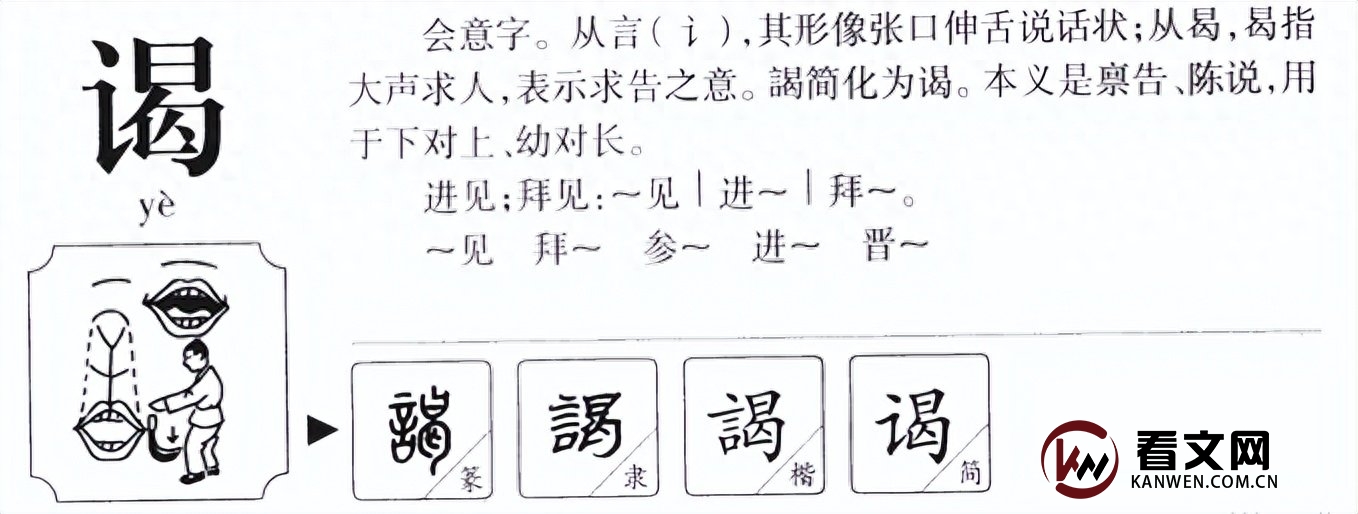 谒
yè
会意字。从言(讠),其形像张口伸舌说话状;从曷,曷指
大声求人,表示求告之意。謁简化为谒。本义是禀告、陈说,用
于下对上、幼对长。
进见;拜见:～见|进～|拜～。
～见 拜～ 参～ 进～ 晋～
謁 篆
謁 隶
謁 楷
谒 简
KW 看文网
KANWEN.COM.CN